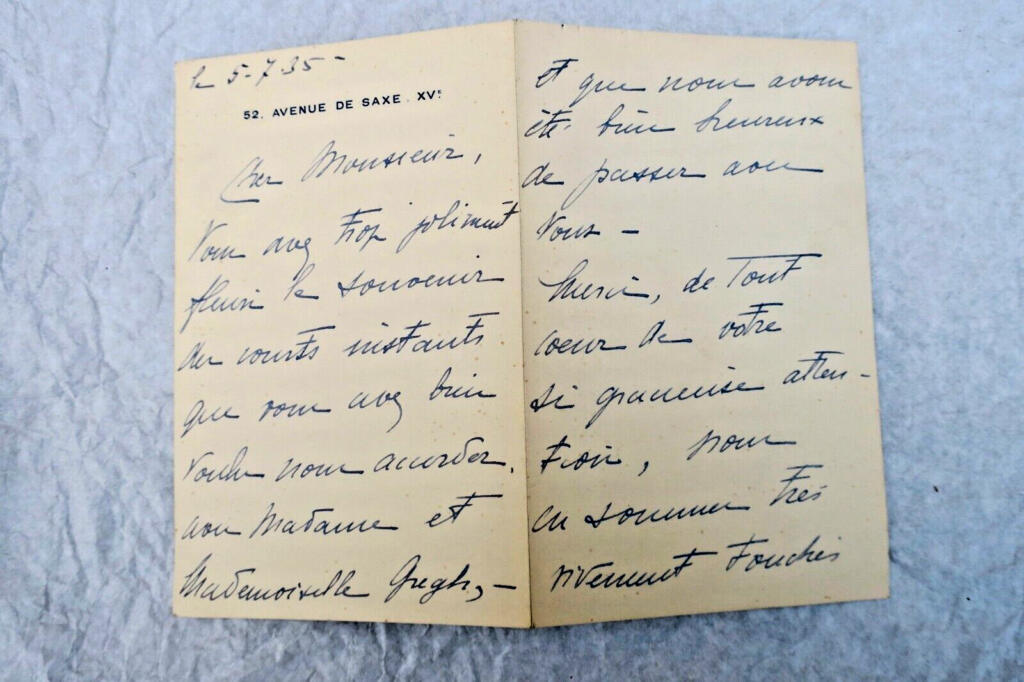 le 5-7-35-
52, AVENUE DE SAXE. XVᵉ
Cher Monsieur,
Vous avez trop joliment
fleuri le souvenir
des courts instants
que vous avez bien
voulu nous accorder,
avec Madame et
Mademoiselle Gregh, —
et que nous avons
été bien heureux
de passer avec
vous —
Merci, de tout
coeur de votre
si gracieuse atten-
tion, nous
en sommes très
vivement touchés